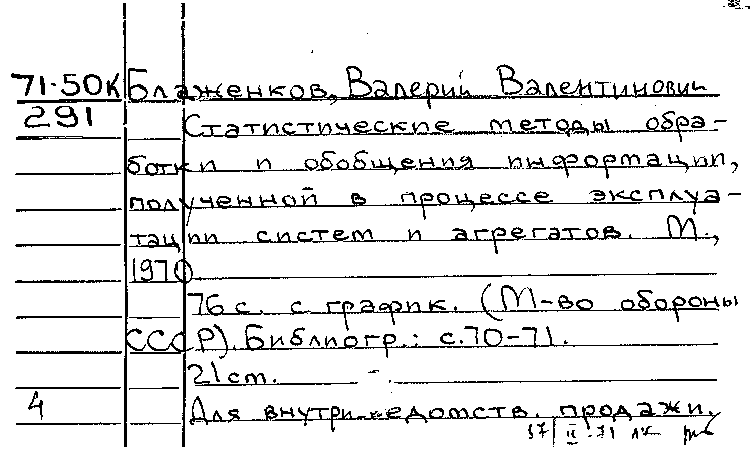 71-50к Блаженков, Валерий Валентинович
291 Статистические методы обра-
ботки и обобщения информации,
полученной в процессе эксплуа-
тации систем и агрегатов. М.,
1970.
76 с. с график. (М-во обороны
СССР). Библиогр.: с. 70-71.
21 см.
4 Для внутриведомств. продажи.